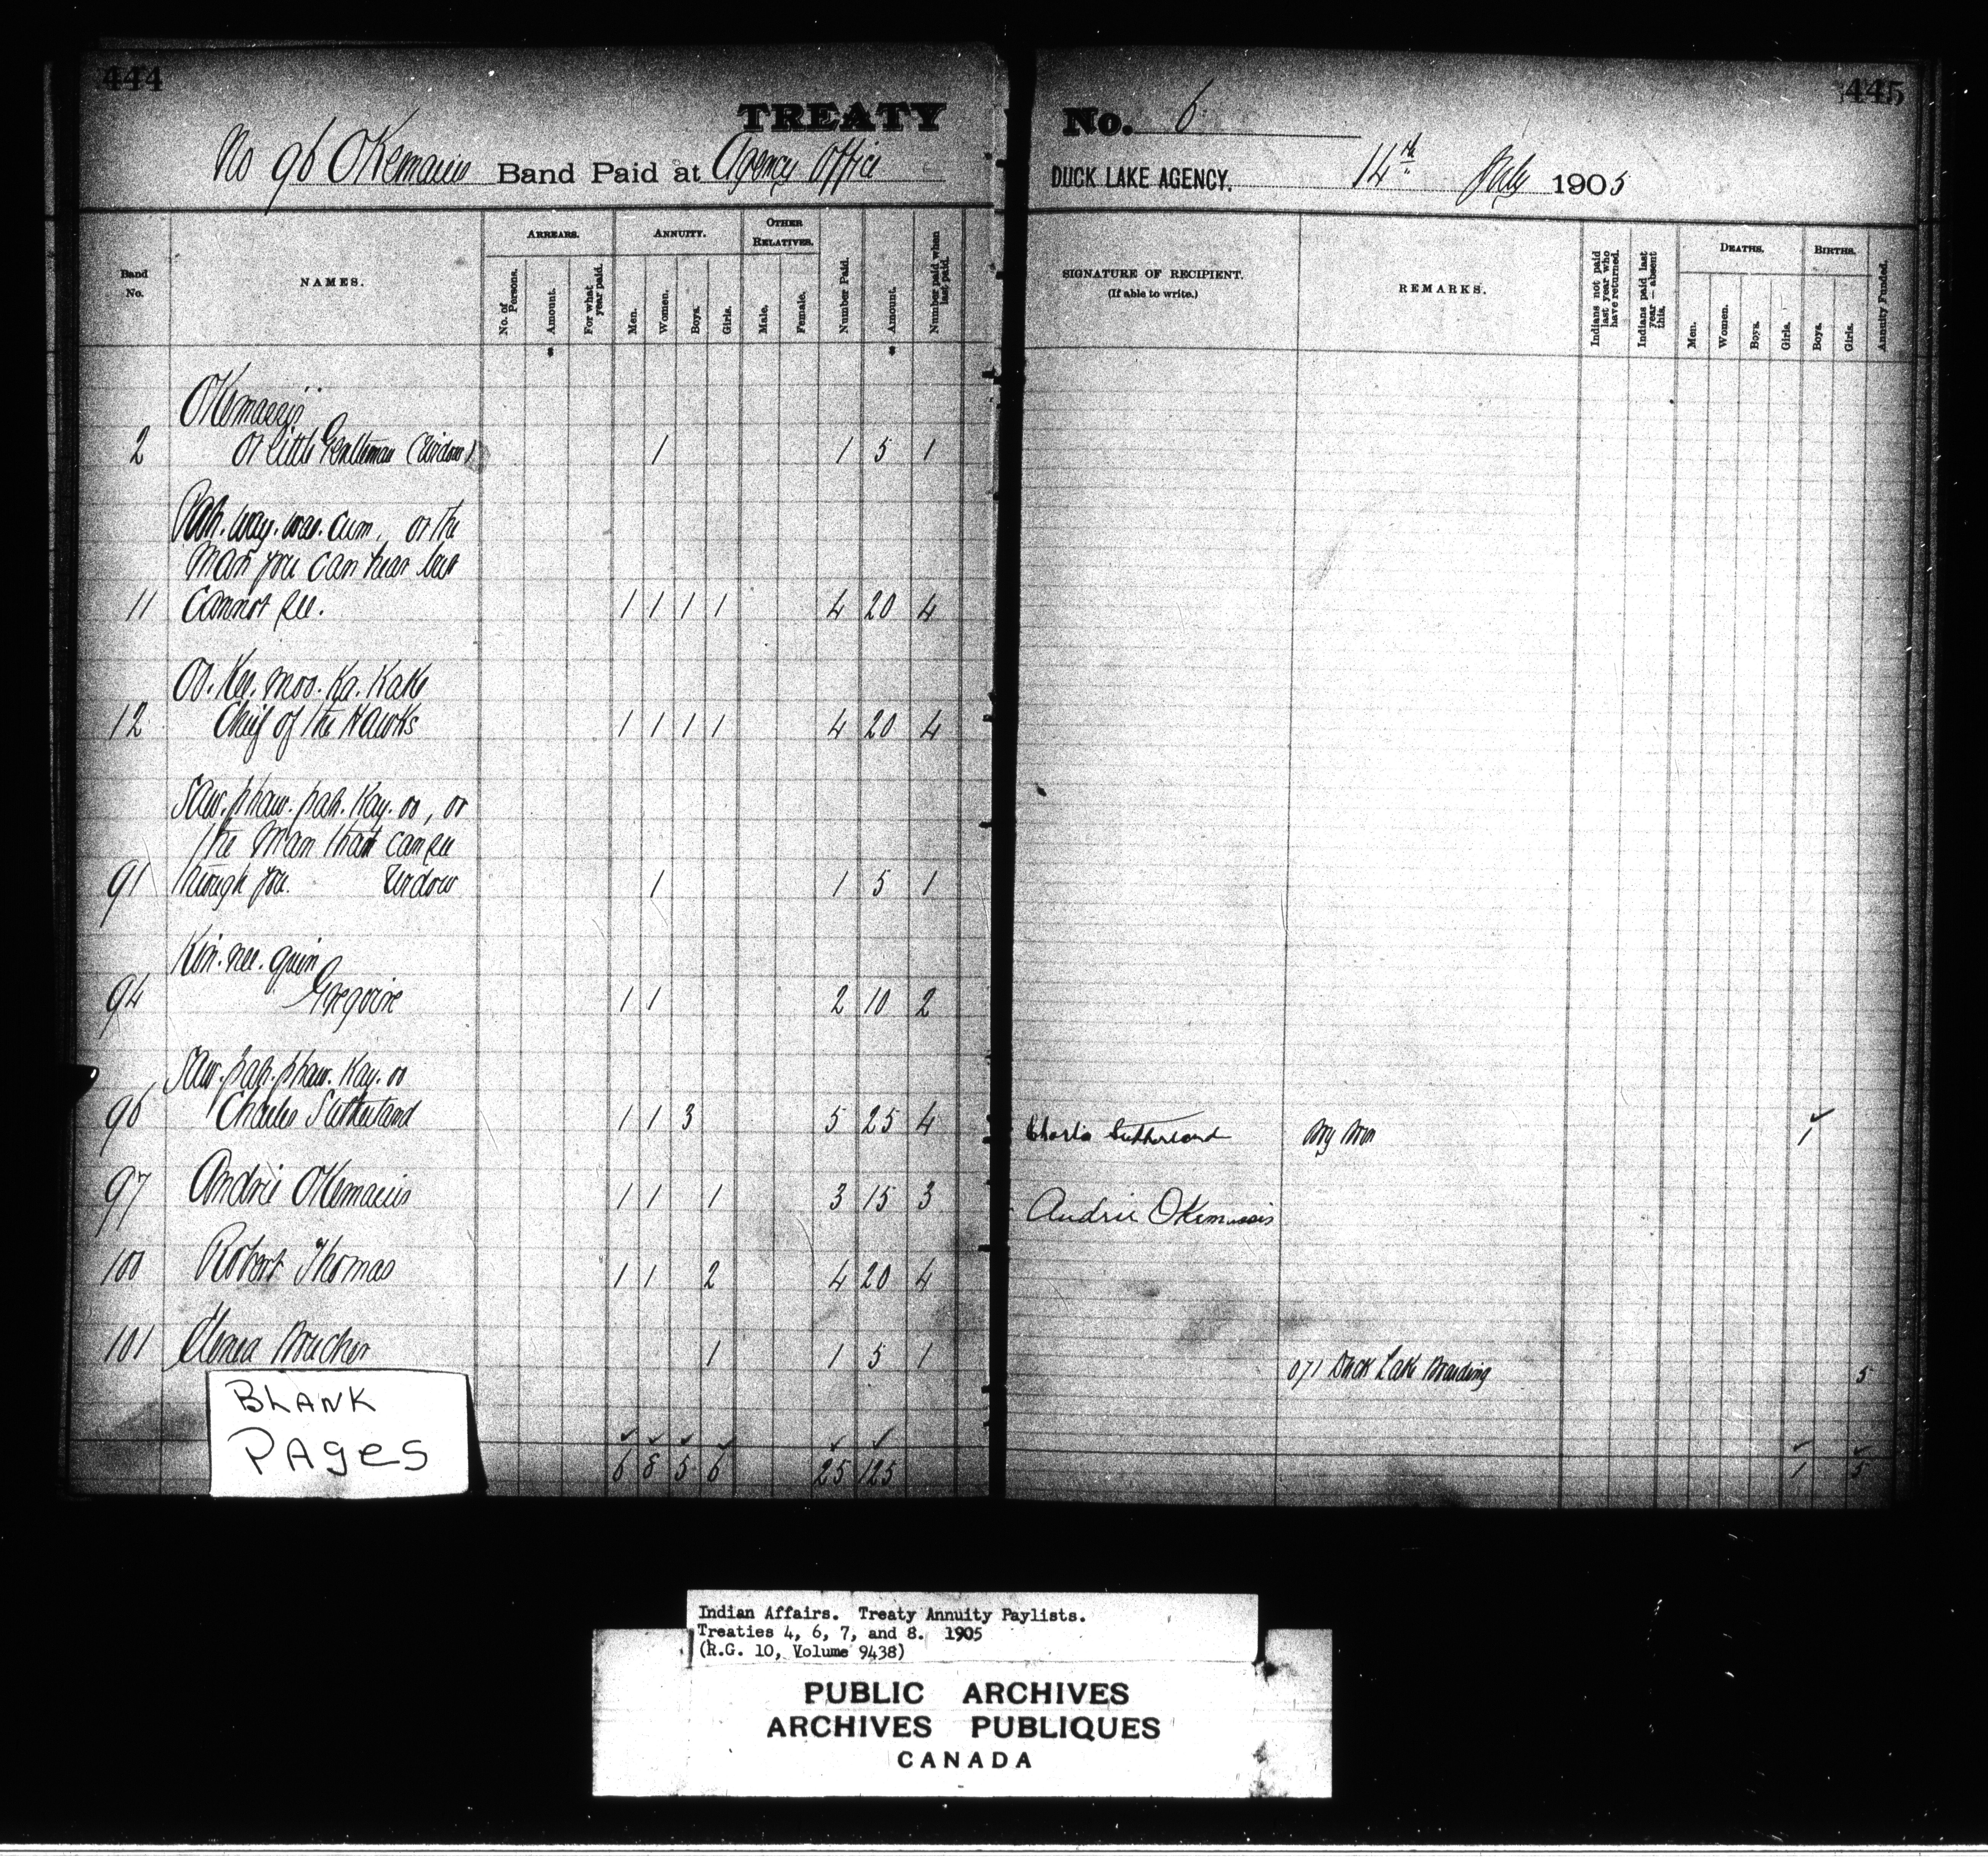 444
TREATY
No 96 Okemacis Band Paid at Agency Office
Band No.
NAMES.
ARREARS.
No. of Persons.
Amount.
For what year paid.
ANNUITY.
Men.
Women.
Boys.
Girls.
OTHER RELATIVES.
Male.
Female.
Number Paid.
Amount.
Number paid when last paid.
Okemacis
2 or Little Gentleman (Widow) 1 1 5 1
Pah.way.was.cum, or the
Man you can hear but
11 cannot see. 1 1 1 1 4 20 4
Oo.Kee.moo.Ka.Kake
12 Chief of the Hawks 1 1 1 1 4 20 4
Saw.phaw.pah.Kay.oo, or
the Man that can see
91 through you. Widow 1 1 5 1
Kin.nee.quin
94 Gregoire 1 1 2 10 2
Saw.pah.phaw.Kay.oo
96 Charles Sutherland 1 1 3 5 25 4
97 Andrie Okemacis 1 1 1 3 15 3
100 Robert Thomas 1 1 2 4 20 4
101 1 1 5 1
BLANK
PAGES
6 8 5 6 25 125
445
No. 6
DUCK LAKE AGENCY. 14th July 1905
SIGNATURE OF RECIPIENT.
(If able to write.)
REMARKS.
Indians not paid last year who have returned.
Indians paid last year — absent this.
DEATHS.
Men.
Women.
Boys.
Girls.
BIRTHS.
Boys.
Girls.
Annuity Funded.
Charles Sutherland 1
Andrie Okemassis
071 Duck Lake Boarding 5
1 5
Indian Affairs. Treaty Annuity Paylists.
Treaties 4, 6, 7, and 8. 1905
(R.G. 10, Volume 9438)
PUBLIC ARCHIVES
ARCHIVES PUBLIQUES
CANADA